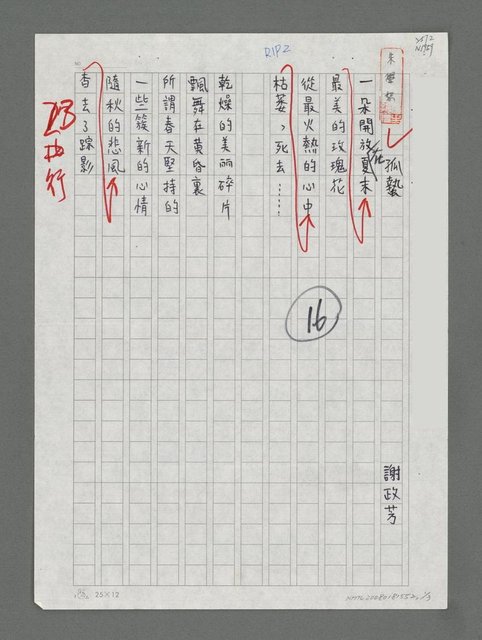 孤蟄
謝政芳
一朵開放在夏末
最美的玫瑰花
從最火熱的心中
枯萎、死去……
乾燥的美麗碎片
飄舞在黃昏裏
所謂春天堅持的
一些簇新的心情
隨秋的悲風
杳去了踪影
R1P2
16
25×12